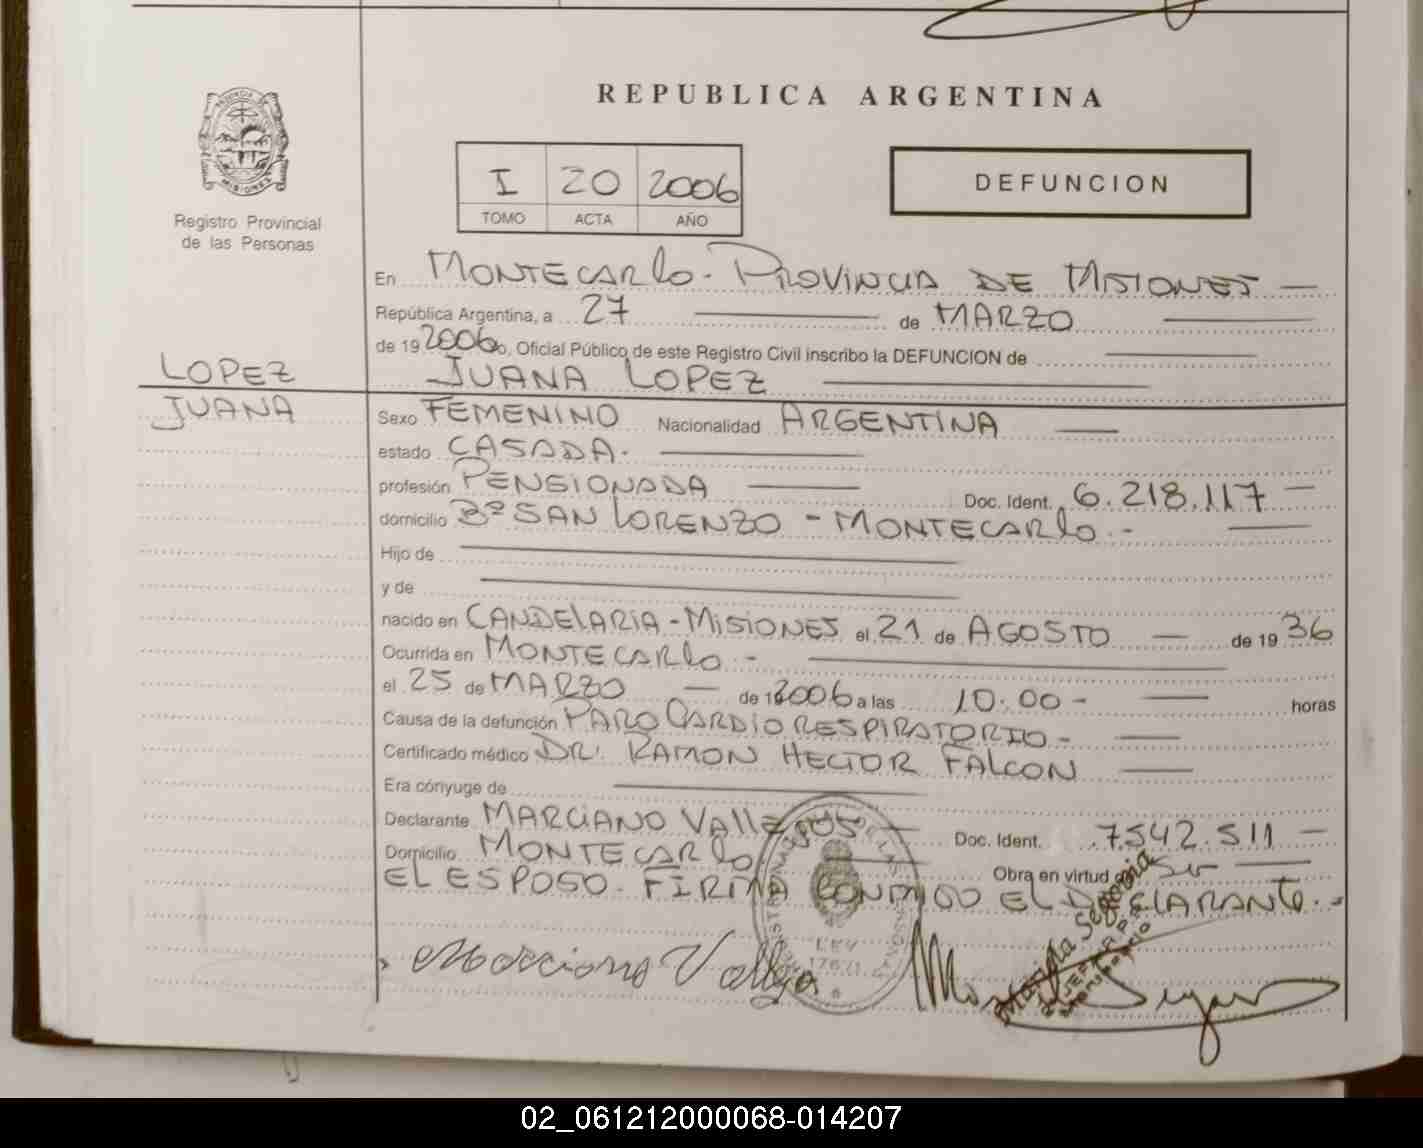 REPUBLICA ARGENTINA
PROVINCIA DE
MISIONES
Registro Provincial
de las Personas
I 20 2006
TOMO ACTA AÑO
DEFUNCION
En MONTECARLO - PROVINCIA DE MISIONES
República Argentina, a 27 de MARZO
de 192006 yo, Oficial Público de este Registro Civil inscribo la DEFUNCION de
LOPEZ
JUANA
JUANA LOPEZ
Sexo FEMENINO Nacionalidad ARGENTINA
estado CASADA.
profesión PENSIONADA Doc. Ident. 6.218.117
domicilio Bº SAN LORENZO - MONTECARLO.-
Hijo de
y de
nacido en CANDELARIA - MISIONES el 21 de AGOSTO de 19 36
Ocurrida en MONTECARLO.-
el 25 de MARZO de 2006 a las 10.00 - horas
Causa de la defunción PARO CARDIORESPIRATORIO -
Certificado médico DR. RAMON HECTOR FALCON
Era cónyuge de
Declarante MARCIANO VALLEJOS Doc. Ident. 7.542.511 -
Domicilio MONTECARLO Obra en virtud de Ser
EL ESPOSO. FIRMA CONMIGO EL DECLARANTE.-
LEY
Marciano Vallejo
02_061212000068-014207